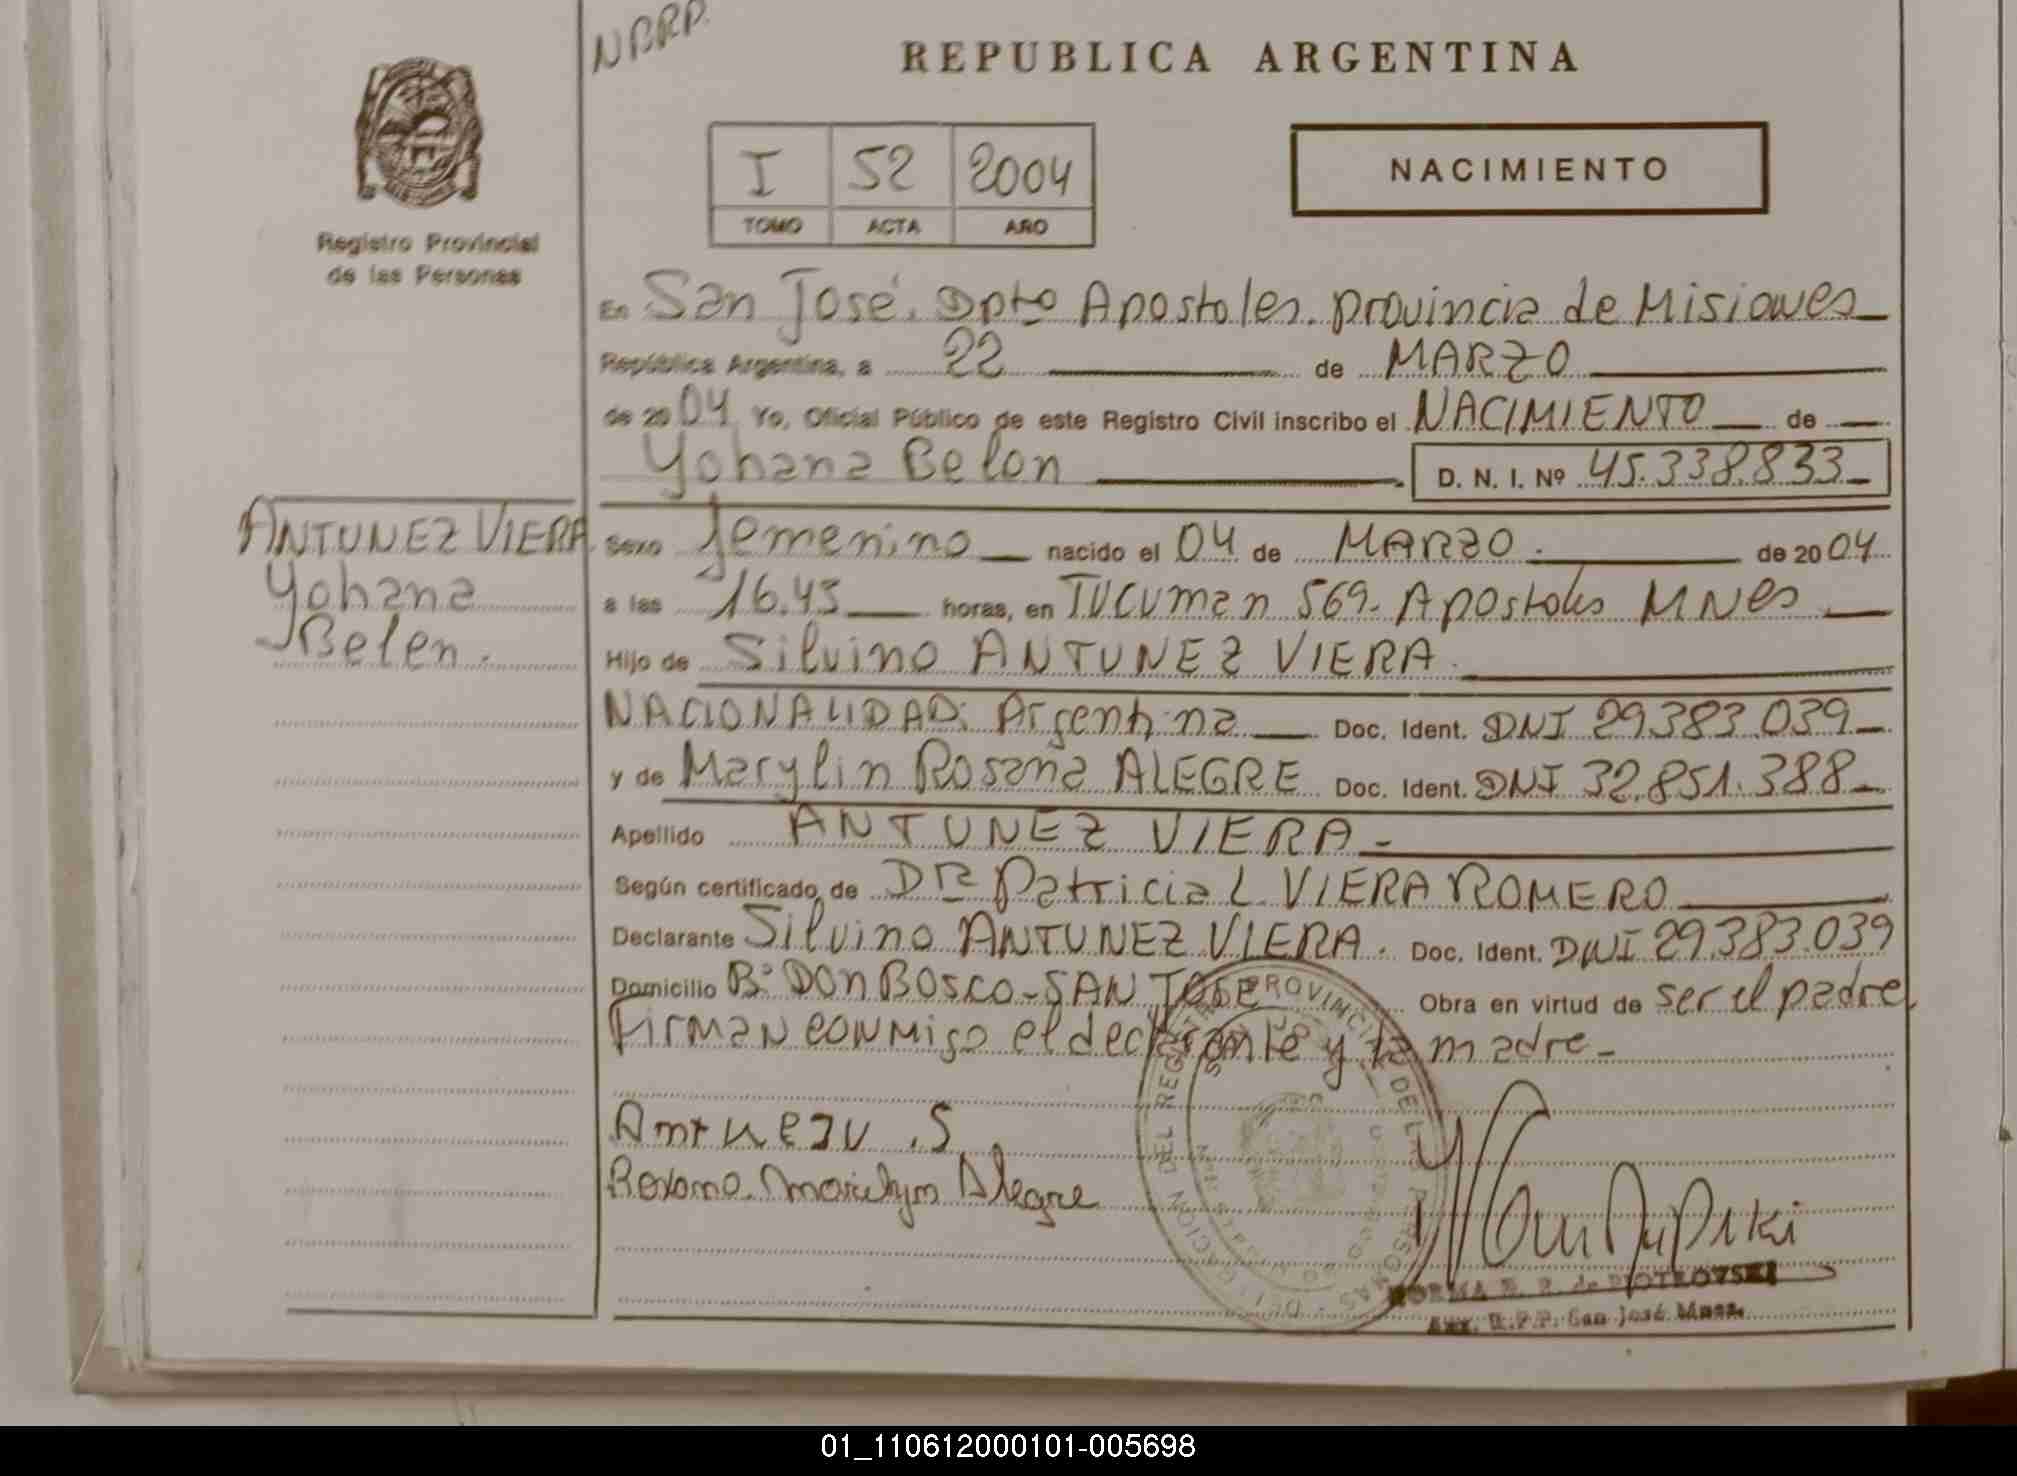 NRRP.
REPUBLICA ARGENTINA
I 52 2004
TOMO ACTA AÑO
NACIMIENTO
Registro Provincial
de las Personas
En San José. Dpto Apostoles. provincia de Misiones
República Argentina, a 22 de MARZO
de 2004 Yo, Oficial Público de este Registro Civil inscribo el NACIMIENTO de
Yohana Belen D. N. I. Nº 45.338.833
ANTUNEZ VIERA
Yohana
Belen.
Sexo femenino nacido el 04 de MARZO. de 2004
a las 16.45 horas, en Tucuman 569. Apostoles MNes
Hijo de Silvino ANTUNEZ VIERA.
NACIONALIDAD: Argentina Doc. Ident. DNI 29.383.039
y de Marylin Rosana ALEGRE Doc. Ident. DNI 32.851.388
Apellido ANTUNEZ VIERA
Según certificado de DRa Patricia L. VIERA ROMERO
Declarante Silvino ANTUNEZ VIERA. Doc. Ident. DNI 29.383.039
Domicilio Bº DON BOSCO - SAN JOSE Obra en virtud de ser el padre
Firman conmigo el declarante y la madre
DELEGACION DEL REGISTRO PROVINCIAL DE LAS PERSONAS
Rosana Marilyn Alegre
NORMA B. R. de PIOTROVSKI
Aux. R.P.P. San José Mnes.
01_110612000101-005698